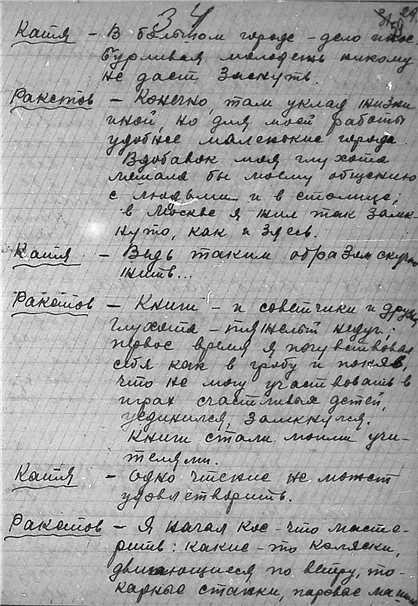 34
Катя - В большом городе - дело иное
бурливая молодежь никому
не даст заснуть.
Ракетов - Конечно, там уклад жизни
иной, но для моей работы
удобнее маленькие города.
Вдобавок моя глухота
мешала бы моему общению
с людьми и в столице;
в Москве я жил так замк-
нуто, как и здесь.
Катя - Ведь таким образом скучно
жить...
Ракетов - Книги - и советчики и друзья
Глухота - тяжелый недуг,
первое время я почувствовал
себя как в гробу и поняв,
что не могу участвовать в
играх счастливых детей,
уединился, замкнулся.
Книги стали моими учи-
телями.
Катя - Одно чтение не может
удовлетворить.
Ракетов - Я начал кое-что масте-
рить: какие-то коляски,
движающиеся по ветру, то-
карные станки, паровые маши